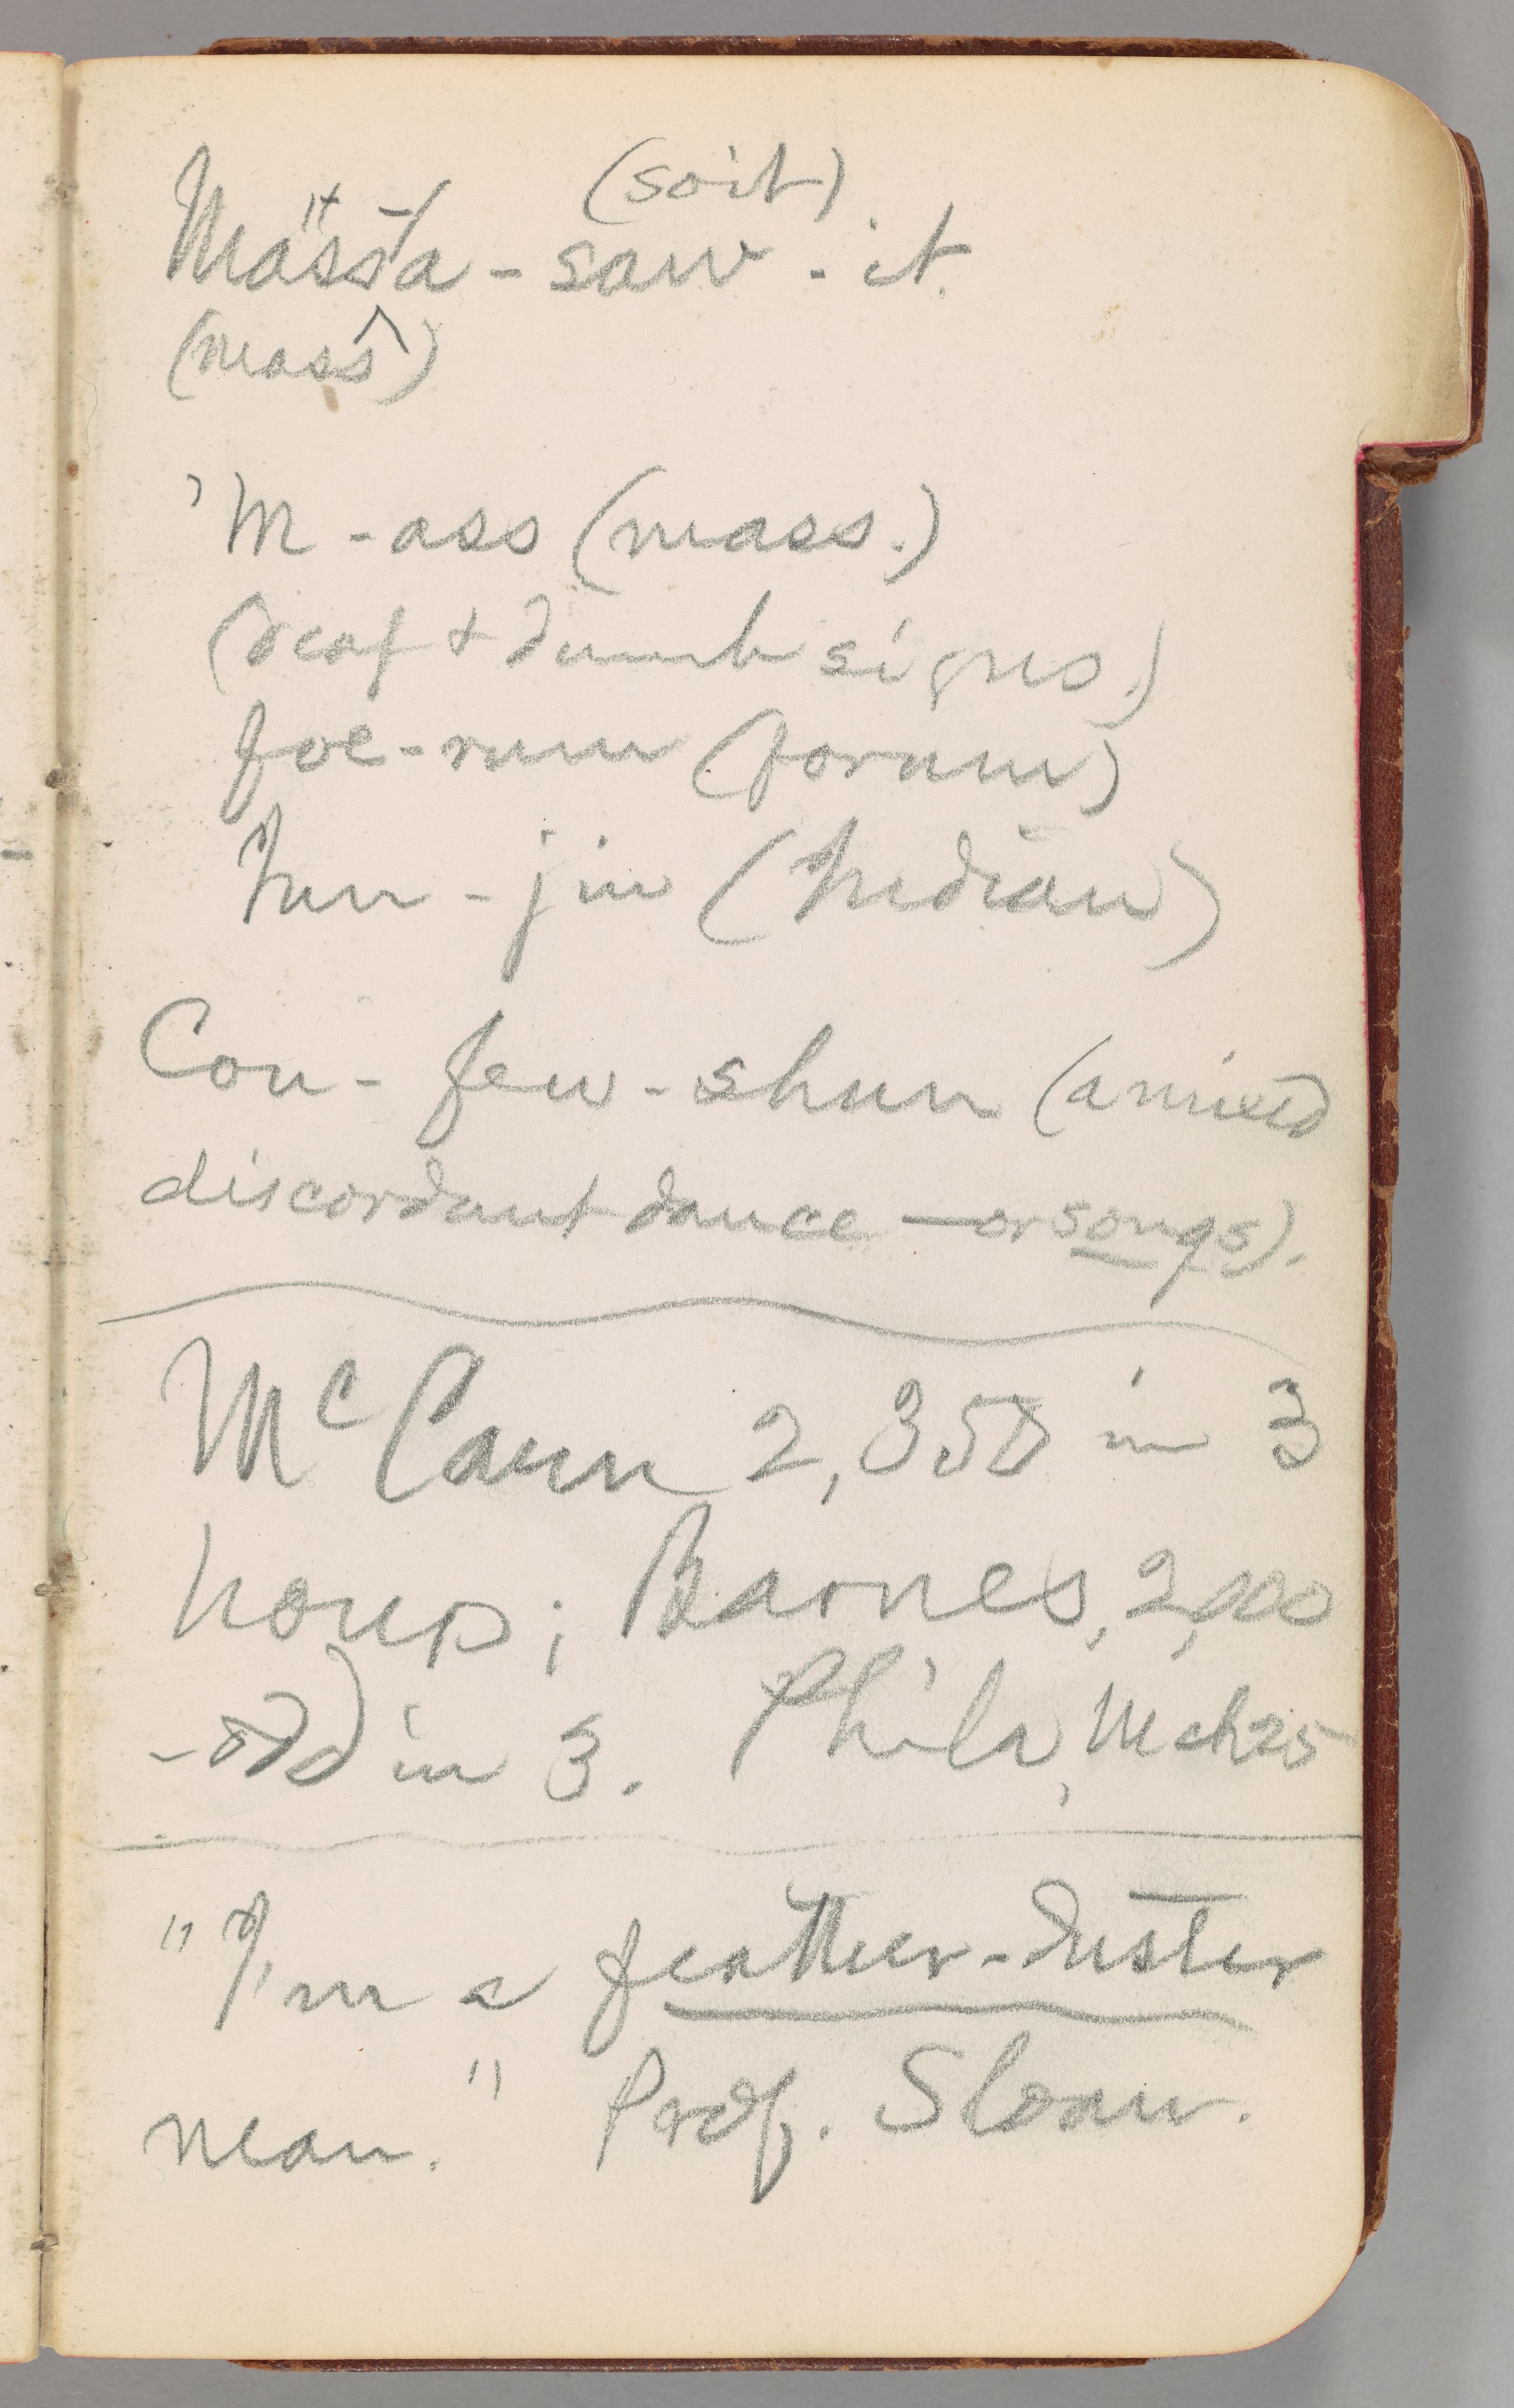 (soit)
Massa - saw - it.
(mass)
'M - ass (mass.)
(deaf + dumb signs.)
foe - rum (forum)
Inn - jin (Indian)
Con - few - shun (a mixed
discordant dance — or songs).
McCann 2,358 in 3
hours; Barnes, 2,000
- odd in 3. Phila, Mch 25
"I'm a feather-duster
man." Prof. Sloan.